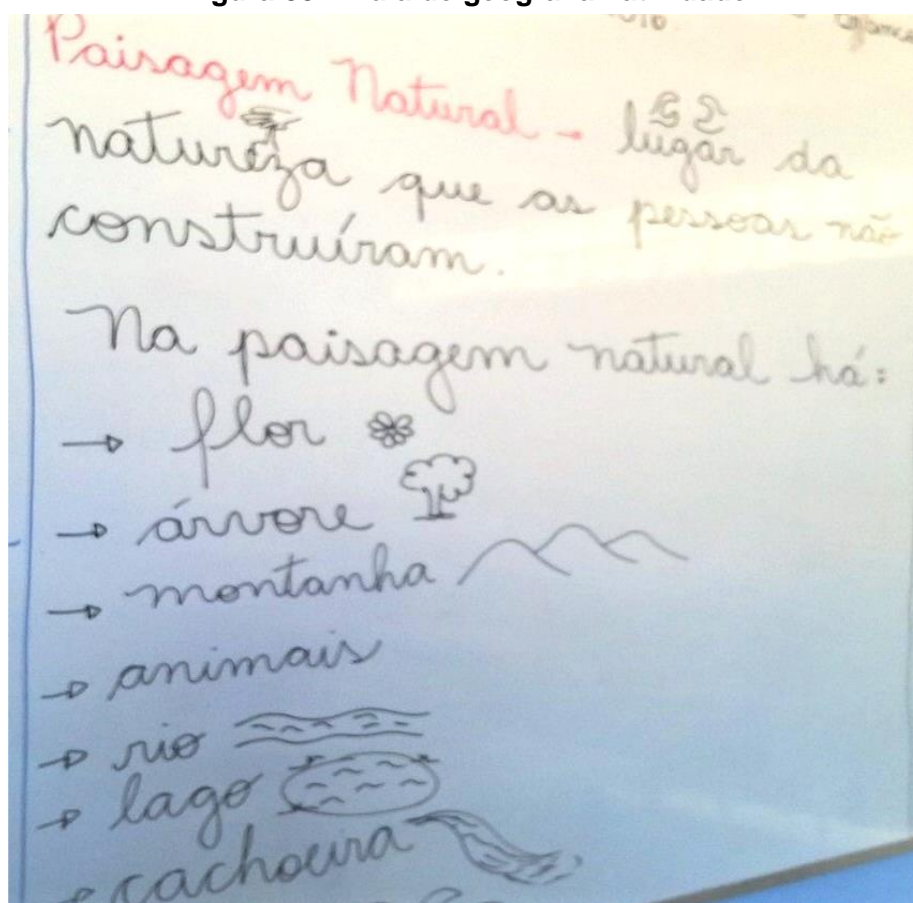 Paisagem Natural - lugar da
natureza que as pessoas não
construíram.
Na paisagem natural há:
→ flor
→ árvore
→ montanha
→ animais
→ rio
→ lago
→ cachoeira